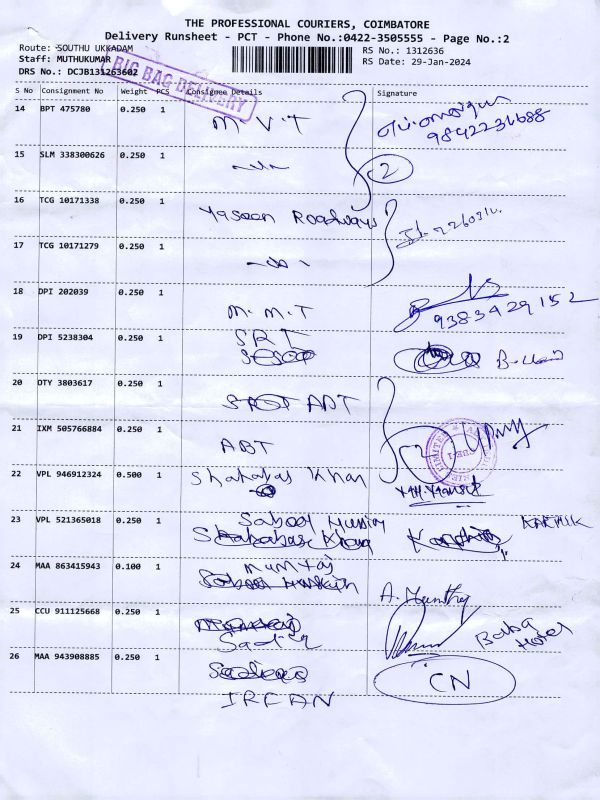 THE PROFESSIONAL COURIERS, COIMBATORE
Delivery Runsheet - PCT - Phone No.:0422-3505555 - Page No.:2
Route: SOUTHU UKKADAM RS No.: 1312636
Staff: MUTHUKUMAR RS Date: 29-Jan-2024
DRS No.: DCJB131263602
BIG BAG DELIVERY
S No Consignment No Weight PCS Consignee Details Signature
14 BPT 475780 0.250 1 M.V.T
9842231688
15 SLM 338300626 0.250 1 2
16 TCG 10171338 0.250 1 Yaseen Roadways
17 TCG 10171279 0.250 1
18 DPI 202039 0.250 1 M.M.T 9383429152
19 DPI 5238304 0.250 1 SRT
20 OTY 3803617 0.250 1 ABT
21 IXM 505766884 0.250 1 ABT 2
22 VPL 946912324 0.500 1 Shahabas Khan
23 VPL 521365018 0.250 1 KARTHIK
24 MAA 863415943 0.100 1 Mumtaj
25 CCU 911125668 0.250 1 Sadiq Baba Hotel
26 MAA 943908885 0.250 1 IRFAN CN